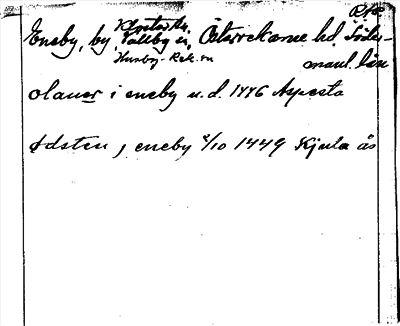 Eneby, by, Vallby sn, Österrekarne hd, Söder-
Husby-Rek. sn
manl. län
olauus i eneby u.d. 1446 Aspesta
Ødsten j eneby 8/10 1449 Kjula ås